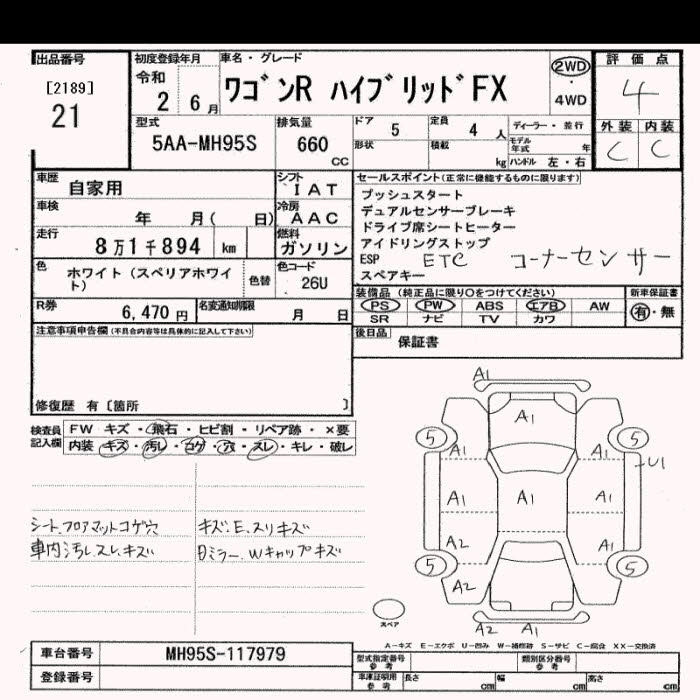 出品番号 初度登録年月 車名・グレード 評価点
[2189] 令和 ワゴンR ハイブリッドFX 2WD・4WD 4
21 2 6月
型式 排気量 ドア 5 定員 4人 ディーラー・並行 外装 内装
5AA-MH95S 660 CC 形状 積載 kg モデル年式 年 C C
ハンドル 左・右
車歴 自家用 シフト IAT セールスポイント(正常に機能するものに限ります)
車検 年 月( 日) 冷房 AAC プッシュスタート
デュアルセンサーブレーキ
走行 8万1千894 km 燃料 ガソリン ドライブ席シートヒーター
アイドリングストップ
色 ホワイト(スペリアホワイト) 色替 色コード 26U ESP ETC コーナーセンサー
スペアキー
R券 6,470円 名変通知期限 月 日 装備品(純正品に限り○をつけてください) 新車保証書
PS PW ABS エアB AW 有・無
SR ナビ TV カワ
注意事項申告欄(不具合内容等は具体的に記入して下さい) 後日品 保証書
修復歴 有〔箇所 〕
検査員記入欄 FW キズ・飛石・ヒビ割・リペア跡・×要
内装 キズ・汚レ・コゲ・穴・スレ・キレ・破レ
シート、フロアマットコゲ穴 キズ、E、スリキズ
車内汚レ、スレ、キズ 日ミラー、Wキャップキズ
A1
A1
5 5
U1
A1 A1
A1 A1 A1
A2 A1
5 5
A2
スペア
A2 A1
A-キズ E-エクボ U-凹み W-補修跡 S-サビ C-腐食 XX-交換済
車台番号 MH95S-117979 型式指定番号 参考 類別区分番号 参考
登録番号 車庫証明用 参考 長さ cm 幅 cm 高さ cm